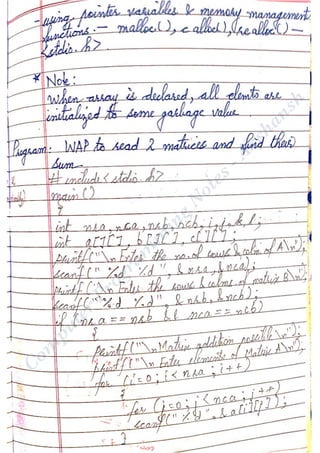 - using pointer variables & memory management
functions. - malloc(), calloc(), realloc() -
<stdio.h>
* Note:
When array is declared, all elemts are
initialized to some garbage value.
Program: WAP to read 2 matrices and find their
sum
# include <stdio.h>
main()
{
int nra, nca, nrb, ncb, i, j, k, l;
int a[][], b[][], c[][];
printf("\n Enter the no. of rows & colm of A\n");
scanf("%d %d", &nra, &nca);
printf("\n Enter the rows & colms of matrix B\n");
scanf("%d %d", &nrb, &ncb);
if (nra == nrb && nca == ncb)
{
printf("\n Matrix addition possible\n");
printf("\n Enter elements of Matrix A\n");
for (i=0; i<nra; i++)
{
for (j=0; j<nca; j++)
scanf("%d", &a[i][j]);
}